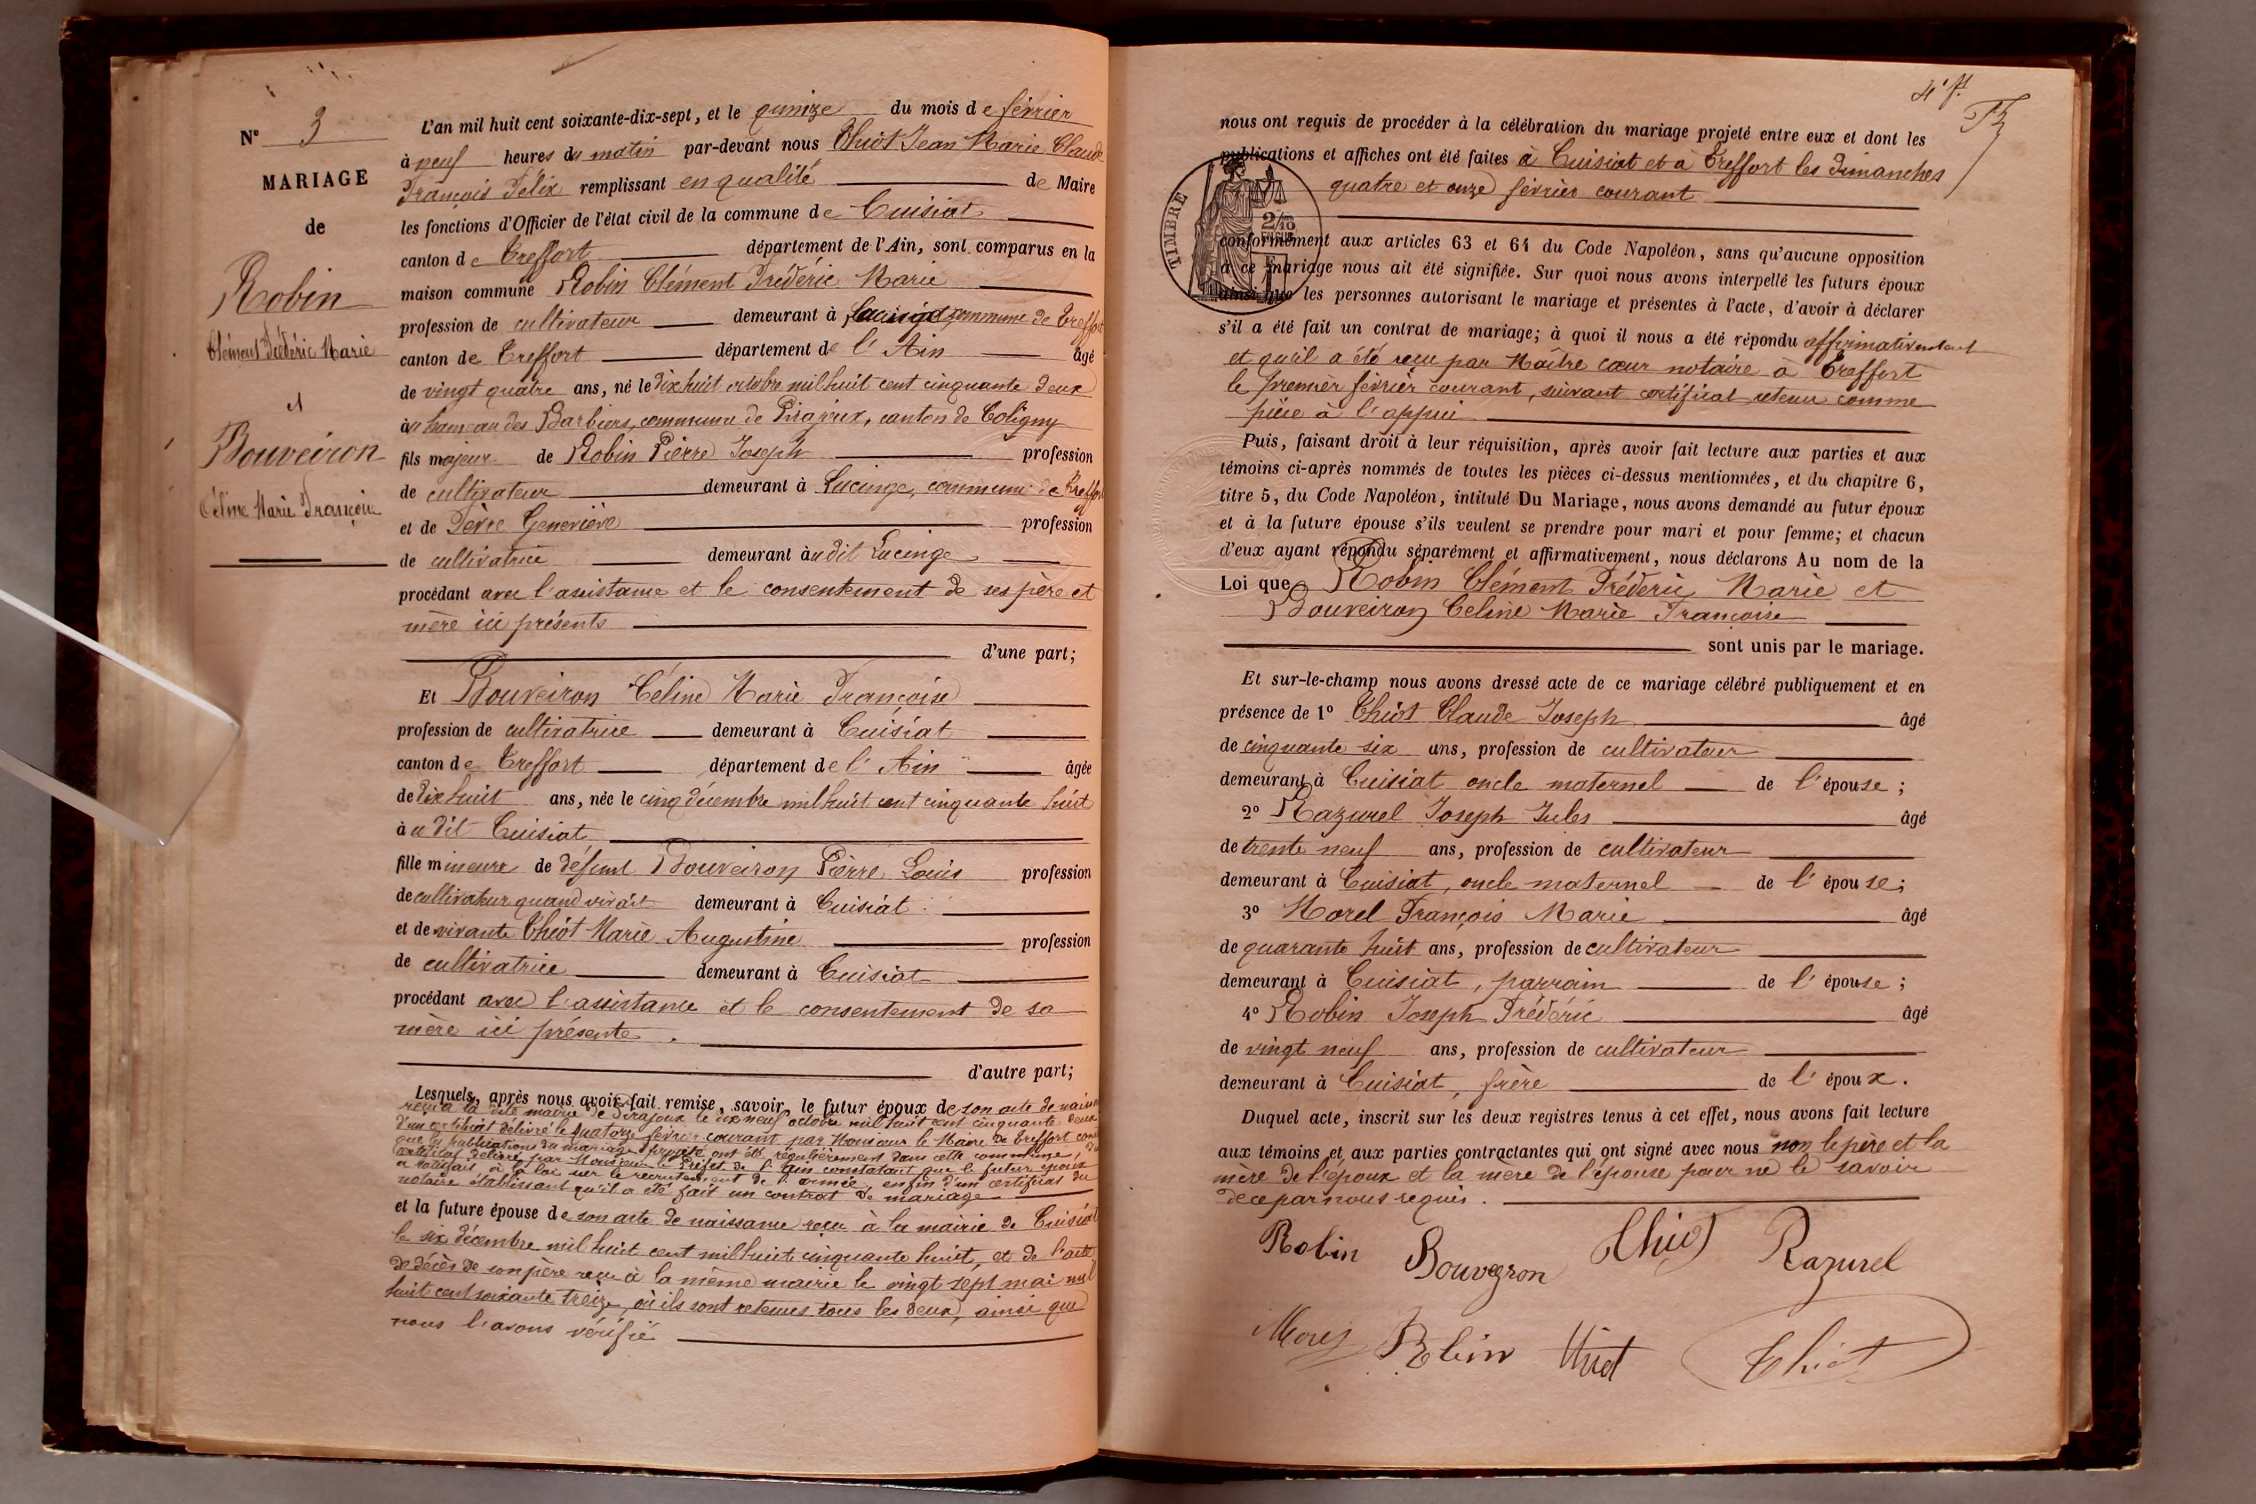 N° 3
MARIAGE
de
Robin
Clément Frédéric Marie
et
Bouveiron
Céline Marie Françoise
L'an mil huit cent soixante-dix-sept, et le quinze du mois de février
à neuf heures du matin par-devant nous Chiot Jean Marie Claude
François Félix remplissant en qualité de Maire
les fonctions d'Officier de l'état civil de la commune de Cuisiat
canton de Treffort département de l'Ain, sont comparus en la
maison commune Robin Clément Frédéric Marie
profession de cultivateur demeurant à Lucinge commune de Treffort
canton de Treffort département de l'Ain âgé
de vingt quatre ans, né le dix huit octobre mil huit cent cinquante deux
au hameau des Barbiers, commune de Pirajoux, canton de Coligny
fils majeur de Robin Pierre Joseph profession
de cultivateur demeurant à Lucinge, commune de Treffort
et de Geneviève profession
de cultivatrice demeurant audit Lucinge
procédant avec l'assistance et le consentement de ses père et
mère ici présents
d'une part;
Et Bouveiron Céline Marie Françoise
profession de cultivatrice demeurant à Cuisiat
canton de Treffort département de l'Ain âgée
de dix huit ans, née le cinq décembre mil huit cent cinquante huit
audit Cuisiat
fille mineure de défunt Bouveiron Pierre Louis profession
de cultivateur quand vivait demeurant à Cuisiat
et de vivante Chiot Marie Augustine profession
de cultivatrice demeurant à Cuisiat
procédant avec l'assistance et le consentement de sa
mère ici présente.
d'autre part;
Lesquels, après nous avoir fait remise, savoir, le futur époux de son acte de naissance
reçu à la dite mairie de Pirajoux le dix neuf octobre mil huit cent cinquante deux
d'un certificat délivré le quatorze février courant par Monsieur le Maire de Treffort
que les publications du mariage projeté ont été régulièrement dans cette commune, d'un
certificat délivré par Monsieur le Préfet de l'Ain constatant que le futur époux
a satisfait à la loi sur le recrutement de l'armée, enfin d'un certificat du
notaire établissant qu'il a été fait un contrat de mariage
et la future épouse de son acte de naissance reçu à la mairie de Cuisiat
le six décembre mil huit cent mil huit cinquante huit, et de l'acte
de décès de son père reçu à la même mairie le vingt sept mai mil
huit cent soixante treize, où ils sont retenus tous les deux, ainsi que
nous l'avons vérifié
nous ont requis de procéder à la célébration du mariage projeté entre eux et dont les
publications et affiches ont été faites à Cuisiat et à Treffort les dimanches
quatre et onze février courant
TIMBRE
conformément aux articles 63 et 64 du Code Napoléon, sans qu'aucune opposition
à ce mariage nous ait été signifiée. Sur quoi nous avons interpellé les futurs époux
ainsi que les personnes autorisant le mariage et présentes à l'acte, d'avoir à déclarer
s'il a été fait un contrat de mariage; à quoi il nous a été répondu affirmativement
et qu'il a été reçu par Maître Cœur notaire à Treffort
le premier février courant, suivant certificat retenu comme
pièce à l'appui
Puis, faisant droit à leur réquisition, après avoir fait lecture aux parties et aux
témoins ci-après nommés de toutes les pièces ci-dessus mentionnées, et du chapitre 6,
titre 5, du Code Napoléon, intitulé Du Mariage, nous avons demandé au futur époux
et à la future épouse s'ils veulent se prendre pour mari et pour femme; et chacun
d'eux ayant répondu séparément et affirmativement, nous déclarons Au nom de la
Loi que Robin Clément Fréderic Marie et
Bouveiron Celine Marie Françoise
sont unis par le mariage.
Et sur-le-champ nous avons dressé acte de ce mariage célébré publiquement et en
présence de 1° Chiot Claude Joseph âgé
de cinquante six ans, profession de cultivateur
demeurant à Cuisiat oncle maternel de l'épouse;
2° Razurel Joseph Jules âgé
de trente neuf ans, profession de cultivateur
demeurant à Cuisiat, oncle maternel de l'épouse;
3° Morel François Marie âgé
de quarante huit ans, profession de cultivateur
demeurant à Cuisiat, parrain de l'épouse;
4° Robin Joseph Frédéric âgé
de vingt neuf ans, profession de cultivateur
demeurant à Cuisiat, frère de l'époux.
Duquel acte, inscrit sur les deux registres tenus à cet effet, nous avons fait lecture
aux témoins et aux parties contractantes qui ont signé avec nous non le père et la
mère de l'époux et la mère de l'épouse pour ne le savoir
de ce par nous requis.
Robin Bouveyron Chiot Razurel
Morel Robin Thiot Chiot